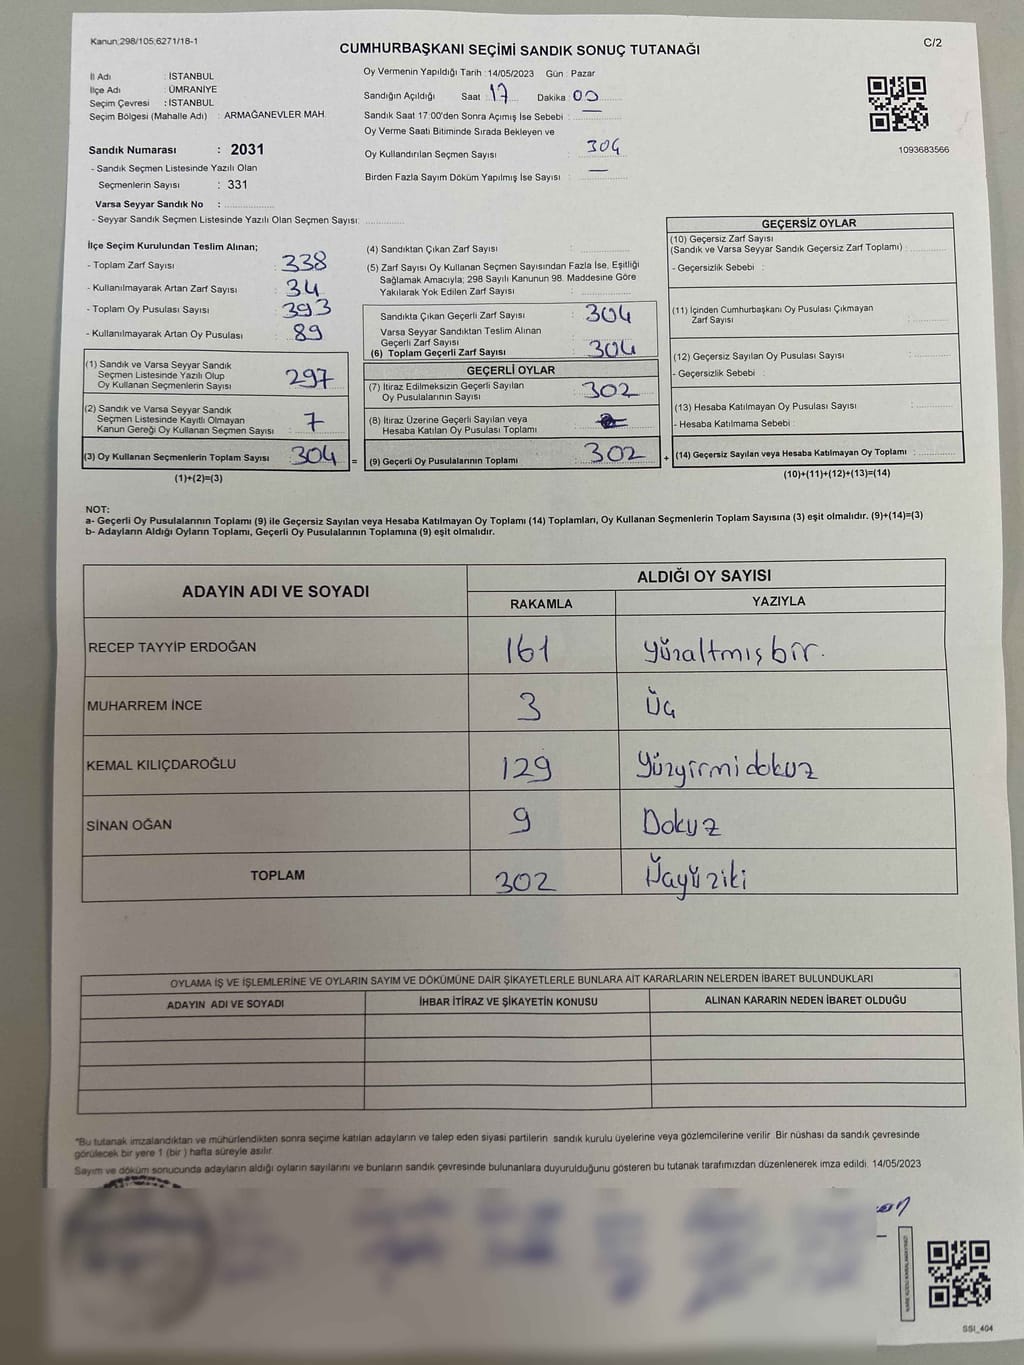 Kanun;298/105;6271/18-1
CUMHURBAŞKANI SEÇİMİ SANDIK SONUÇ TUTANAĞI
C/2
İl Adı : İSTANBUL
İlçe Adı : ÜMRANİYE
Seçim Çevresi : İSTANBUL
Seçim Bölgesi (Mahalle Adı) : ARMAĞANEVLER MAH.
Oy Vermenin Yapıldığı Tarih : 14/05/2023 Gün : Pazar
Sandığın Açıldığı Saat : 17 Dakika : 00
Sandık Saat 17:00'den Sonra Açımış İse Sebebi : —
Oy Verme Saati Bitiminde Sırada Bekleyen ve
Oy Kullandırılan Seçmen Sayısı : 304
Birden Fazla Sayım Döküm Yapılmış İse Sayısı : —
1093683566
Sandık Numarası : 2031
- Sandık Seçmen Listesinde Yazılı Olan
Seçmenlerin Sayısı : 331
Varsa Seyyar Sandık No :
- Seyyar Sandık Seçmen Listesinde Yazılı Olan Seçmen Sayısı:
İlçe Seçim Kurulundan Teslim Alınan;
- Toplam Zarf Sayısı : 338
- Kullanılmayarak Artan Zarf Sayısı : 34
- Toplam Oy Pusulası Sayısı : 393
- Kullanılmayarak Artan Oy Pusulası : 89
(1) Sandık ve Varsa Seyyar Sandık
Seçmen Listesinde Yazılı Olup
Oy Kullanan Seçmenlerin Sayısı : 297
(2) Sandık ve Varsa Seyyar Sandık
Seçmen Listesinde Kayıtlı Olmayan
Kanun Gereği Oy Kullanan Seçmen Sayısı : 7
(3) Oy Kullanan Seçmenlerin Toplam Sayısı : 304 =
(1)+(2)=(3)
(4) Sandıktan Çıkan Zarf Sayısı :
(5) Zarf Sayısı Oy Kullanan Seçmen Sayısından Fazla İse, Eşitliği
Sağlamak Amacıyla; 298 Sayılı Kanunun 98. Maddesine Göre
Yakılarak Yok Edilen Zarf Sayısı :
Sandıkta Çıkan Geçerli Zarf Sayısı : 304
Varsa Seyyar Sandıktan Teslim Alınan
Geçerli Zarf Sayısı :
(6) Toplam Geçerli Zarf Sayısı : 304
GEÇERLİ OYLAR
(7) İtiraz Edilmeksizin Geçerli Sayılan
Oy Pusulalarının Sayısı : 302
(8) İtiraz Üzerine Geçerli Sayılan veya
Hesaba Katılan Oy Pusulası Toplamı :
(9) Geçerli Oy Pusulalarının Toplamı : 302 +
GEÇERSİZ OYLAR
(10) Geçersiz Zarf Sayısı
(Sandık ve Varsa Seyyar Sandık Geçersiz Zarf Toplamı) :
- Geçersizlik Sebebi :
(11) İçinden Cumhurbaşkanı Oy Pusulası Çıkmayan
Zarf Sayısı :
(12) Geçersiz Sayılan Oy Pusulası Sayısı :
- Geçersizlik Sebebi :
(13) Hesaba Katılmayan Oy Pusulası Sayısı :
- Hesaba Katılmama Sebebi :
(14) Geçersiz Sayılan veya Hesaba Katılmayan Oy Toplamı :
(10)+(11)+(12)+(13)=(14)
NOT:
a- Geçerli Oy Pusulalarının Toplamı (9) ile Geçersiz Sayılan veya Hesaba Katılmayan Oy Toplamı (14) Toplamları, Oy Kullanan Seçmenlerin Toplam Sayısına (3) eşit olmalıdır. (9)+(14)=(3)
b- Adayların Aldığı Oyların Toplamı, Geçerli Oy Pusulalarının Toplamına (9) eşit olmalıdır.
ADAYIN ADI VE SOYADI
ALDIĞI OY SAYISI
RAKAMLA YAZIYLA
RECEP TAYYİP ERDOĞAN 161 Yüzaltmışbir.
MUHARREM İNCE 3 Üç
KEMAL KILIÇDAROĞLU 129 Yüzyirmidokuz
SİNAN OĞAN 9 Dokuz
TOPLAM 302 Üçyüziki
OYLAMA İŞ VE İŞLEMLERİNE VE OYLARIN SAYIM VE DÖKÜMÜNE DAİR ŞİKAYETLERLE BUNLARA AİT KARARLARIN NELERDEN İBARET BULUNDUKLARI
ADAYIN ADI VE SOYADI İHBAR İTİRAZ VE ŞİKAYETİN KONUSU ALINAN KARARIN NEDEN İBARET OLDUĞU
*Bu tutanak imzalandıktan ve mühürlendikten sonra seçime katılan adayların ve talep eden siyasi partilerin sandık kurulu üyelerine veya gözlemcilerine verilir. Bir nüshası da sandık çevresinde
görülecek bir yere 1 (bir ) hafta süreyle asılır.
Sayım ve döküm sonucunda adayların aldığı oyların sayılarını ve bunların sandık çevresinde bulunanlara duyurulduğunu gösteren bu tutanak tarafımızdan düzenlenerek imza edildi. 14/05/2023
SSI_404